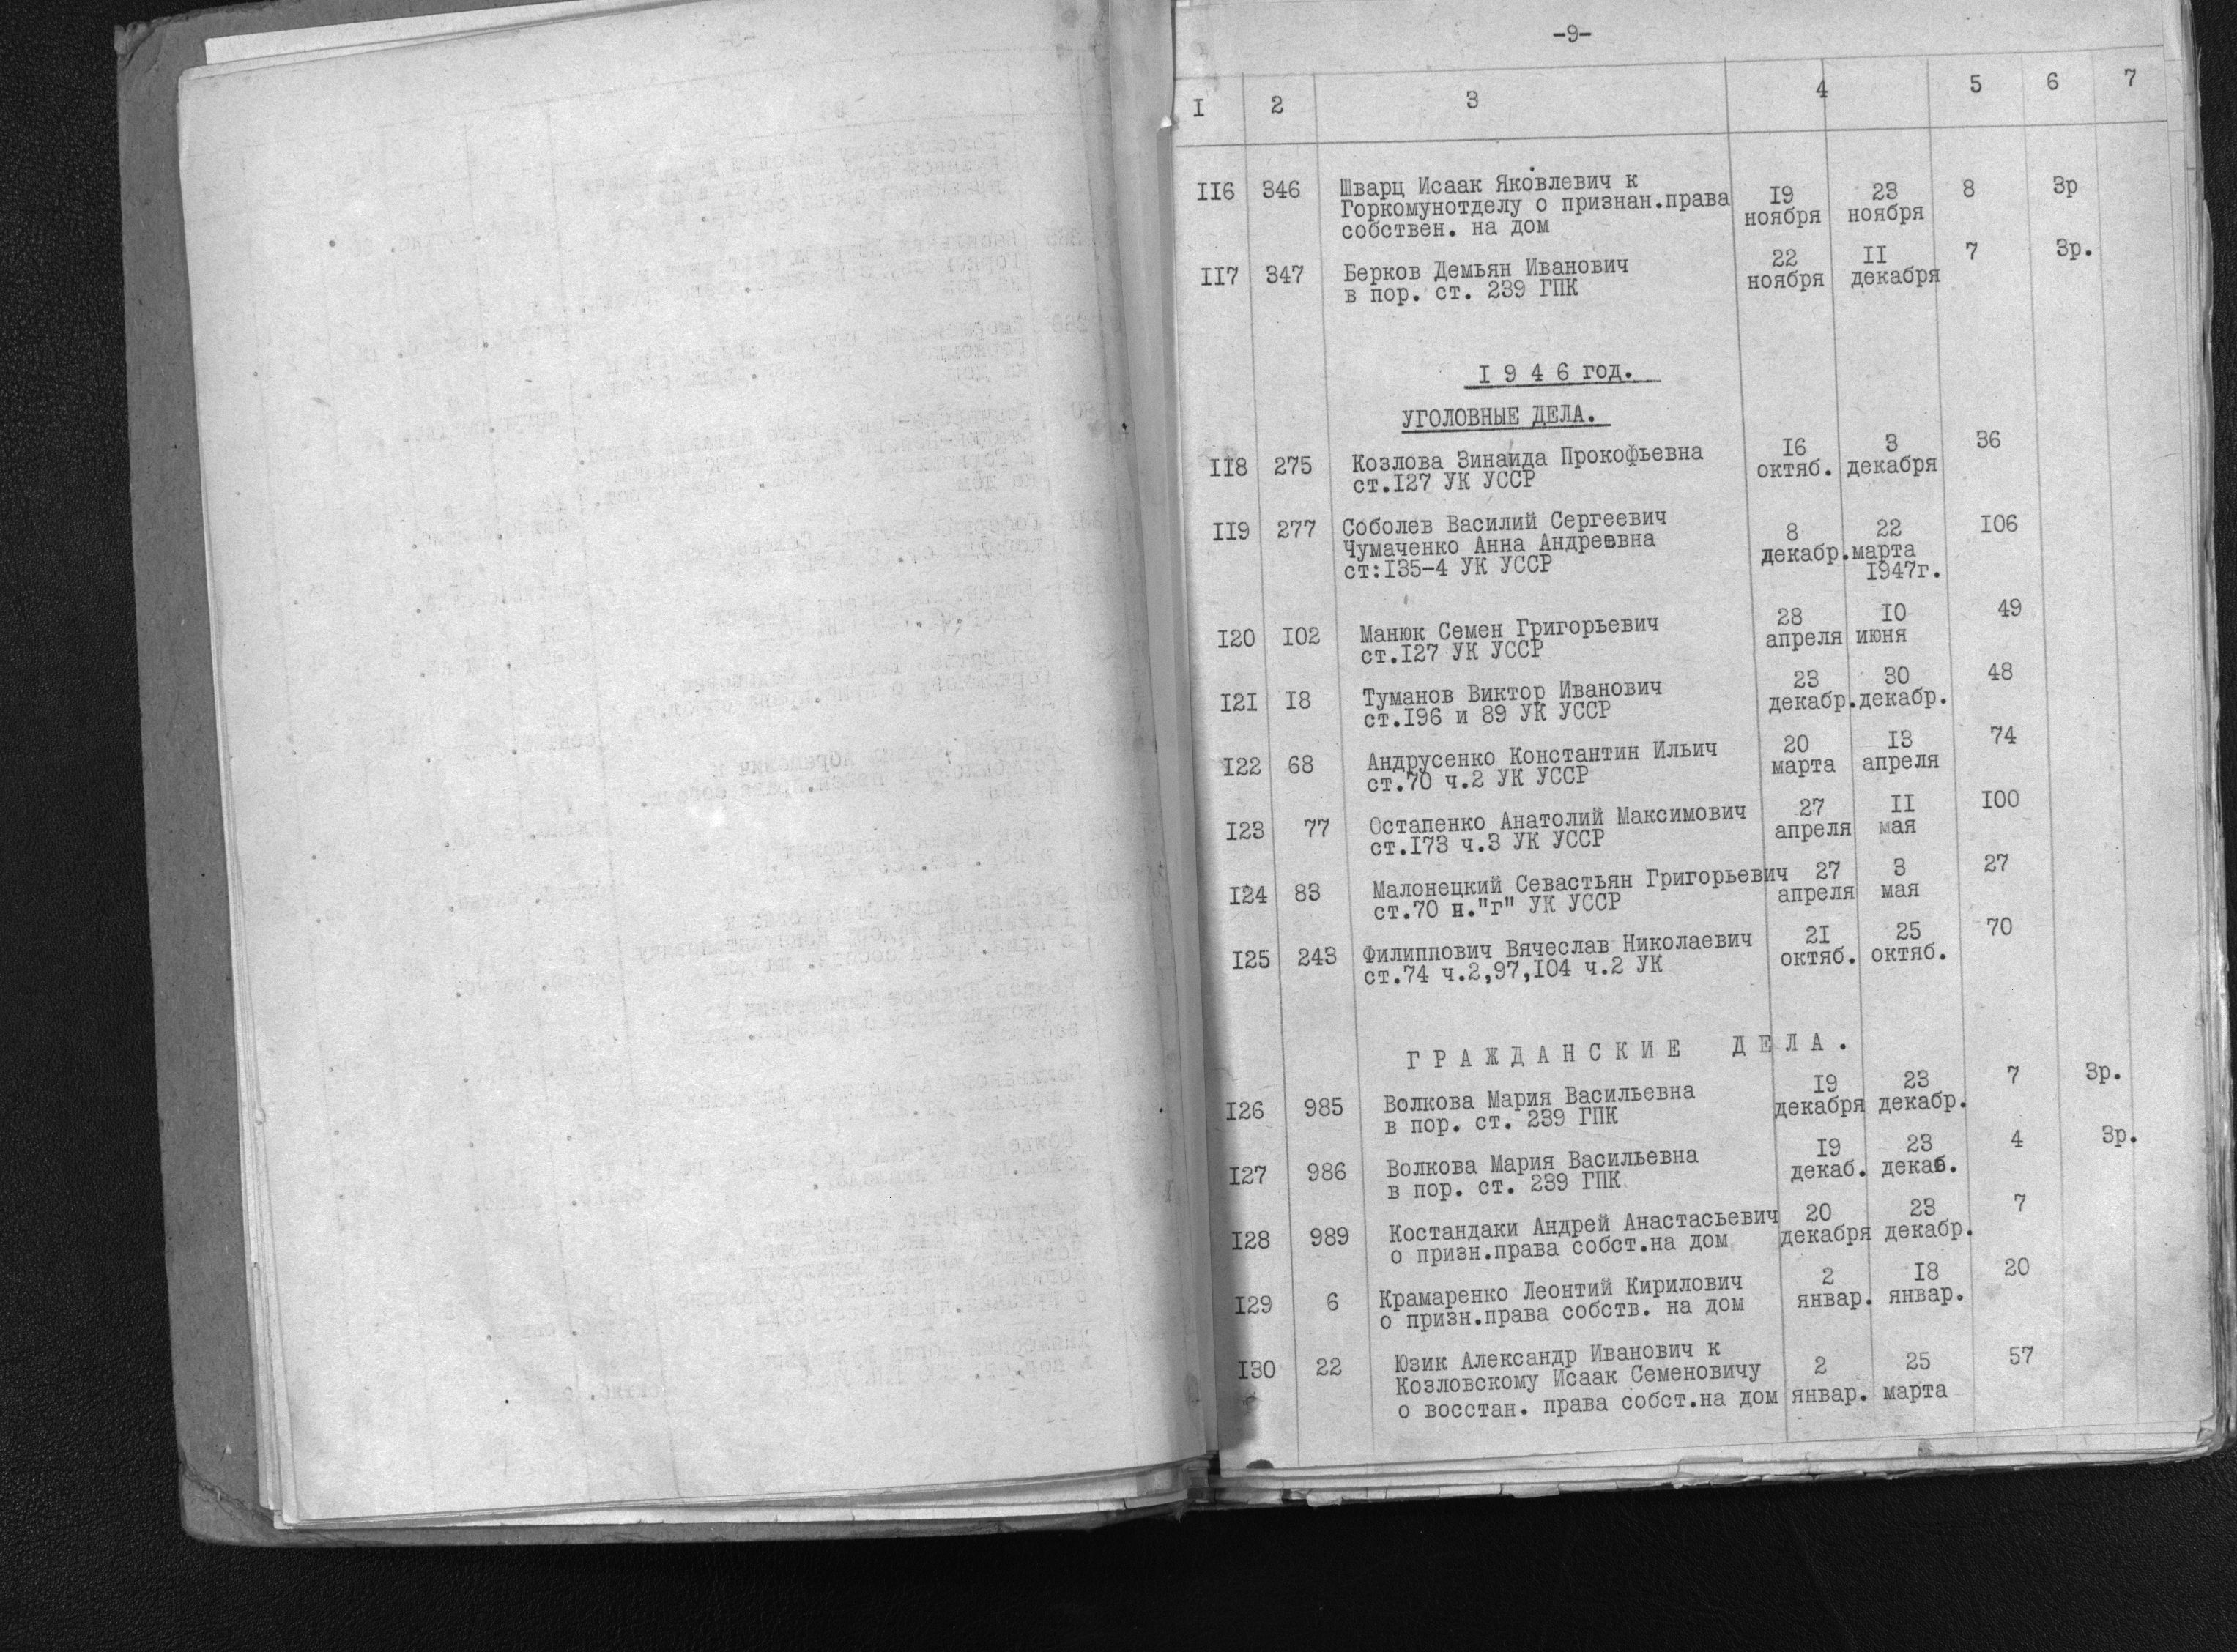 -9-
I 2 3 4 5 6 7
II6 346 Шварц Исаак Яковлевич к 19 23 8 3р
Горкомунотделу о признан.права ноября ноября
собствен. на дом
II7 347 Берков Демьян Иванович 22 II 7 3р.
в пор. ст. 239 ГПК ноября декабря
I 9 4 6 год.
УГОЛОВНЫЕ ДЕЛА.
II8 275 Козлова Зинаида Прокофьевна I6 3 36
ст.I27 УК УССР октяб. декабря
II9 277 Соболев Василий Сергеевич 8 22 I06
Чумаченко Анна Андреевна декабр. марта
ст:I35-4 УК УССР I947г.
I20 I02 Манюк Семен Григорьевич 28 I0 49
ст.I27 УК УССР апреля июня
I2I I8 Туманов Виктор Иванович 23 30 48
ст.I96 и 89 УК УССР декабр. декабр.
I22 68 Андрусенко Константин Ильич 20 I3 74
ст.70 ч.2 УК УССР марта апреля
I23 77 Остапенко Анатолий Максимович 27 II I00
ст.I73 ч.3 УК УССР апреля мая
I24 83 Малонецкий Севастьян Григорьевич 27 3 27
ст.70 п."г" УК УССР апреля мая
I25 243 Филиппович Вячеслав Николаевич 2I 25 70
ст.74 ч.2,97,I04 ч.2 УК октяб. октяб.
Г Р А Ж Д А Н С К И Е Д Е Л А .
I26 985 Волкова Мария Васильевна I9 23 7 3р.
в пор. ст. 239 ГПК декабря декабр.
I27 986 Волкова Мария Васильевна I9 23 4 3р.
в пор. ст. 239 ГПК декаб. декаб.
I28 989 Костандаки Андрей Анастасьевич 20 23 7
о призн.права собст.на дом декабря декабр.
I29 6 Крамаренко Леонтий Кирилович 2 I8 20
о призн.права собств. на дом январ. январ.
I30 22 Юзик Александр Иванович к 2 25 57
Козловскому Исаак Семеновичу
о восстан. права собст.на дом январ. марта